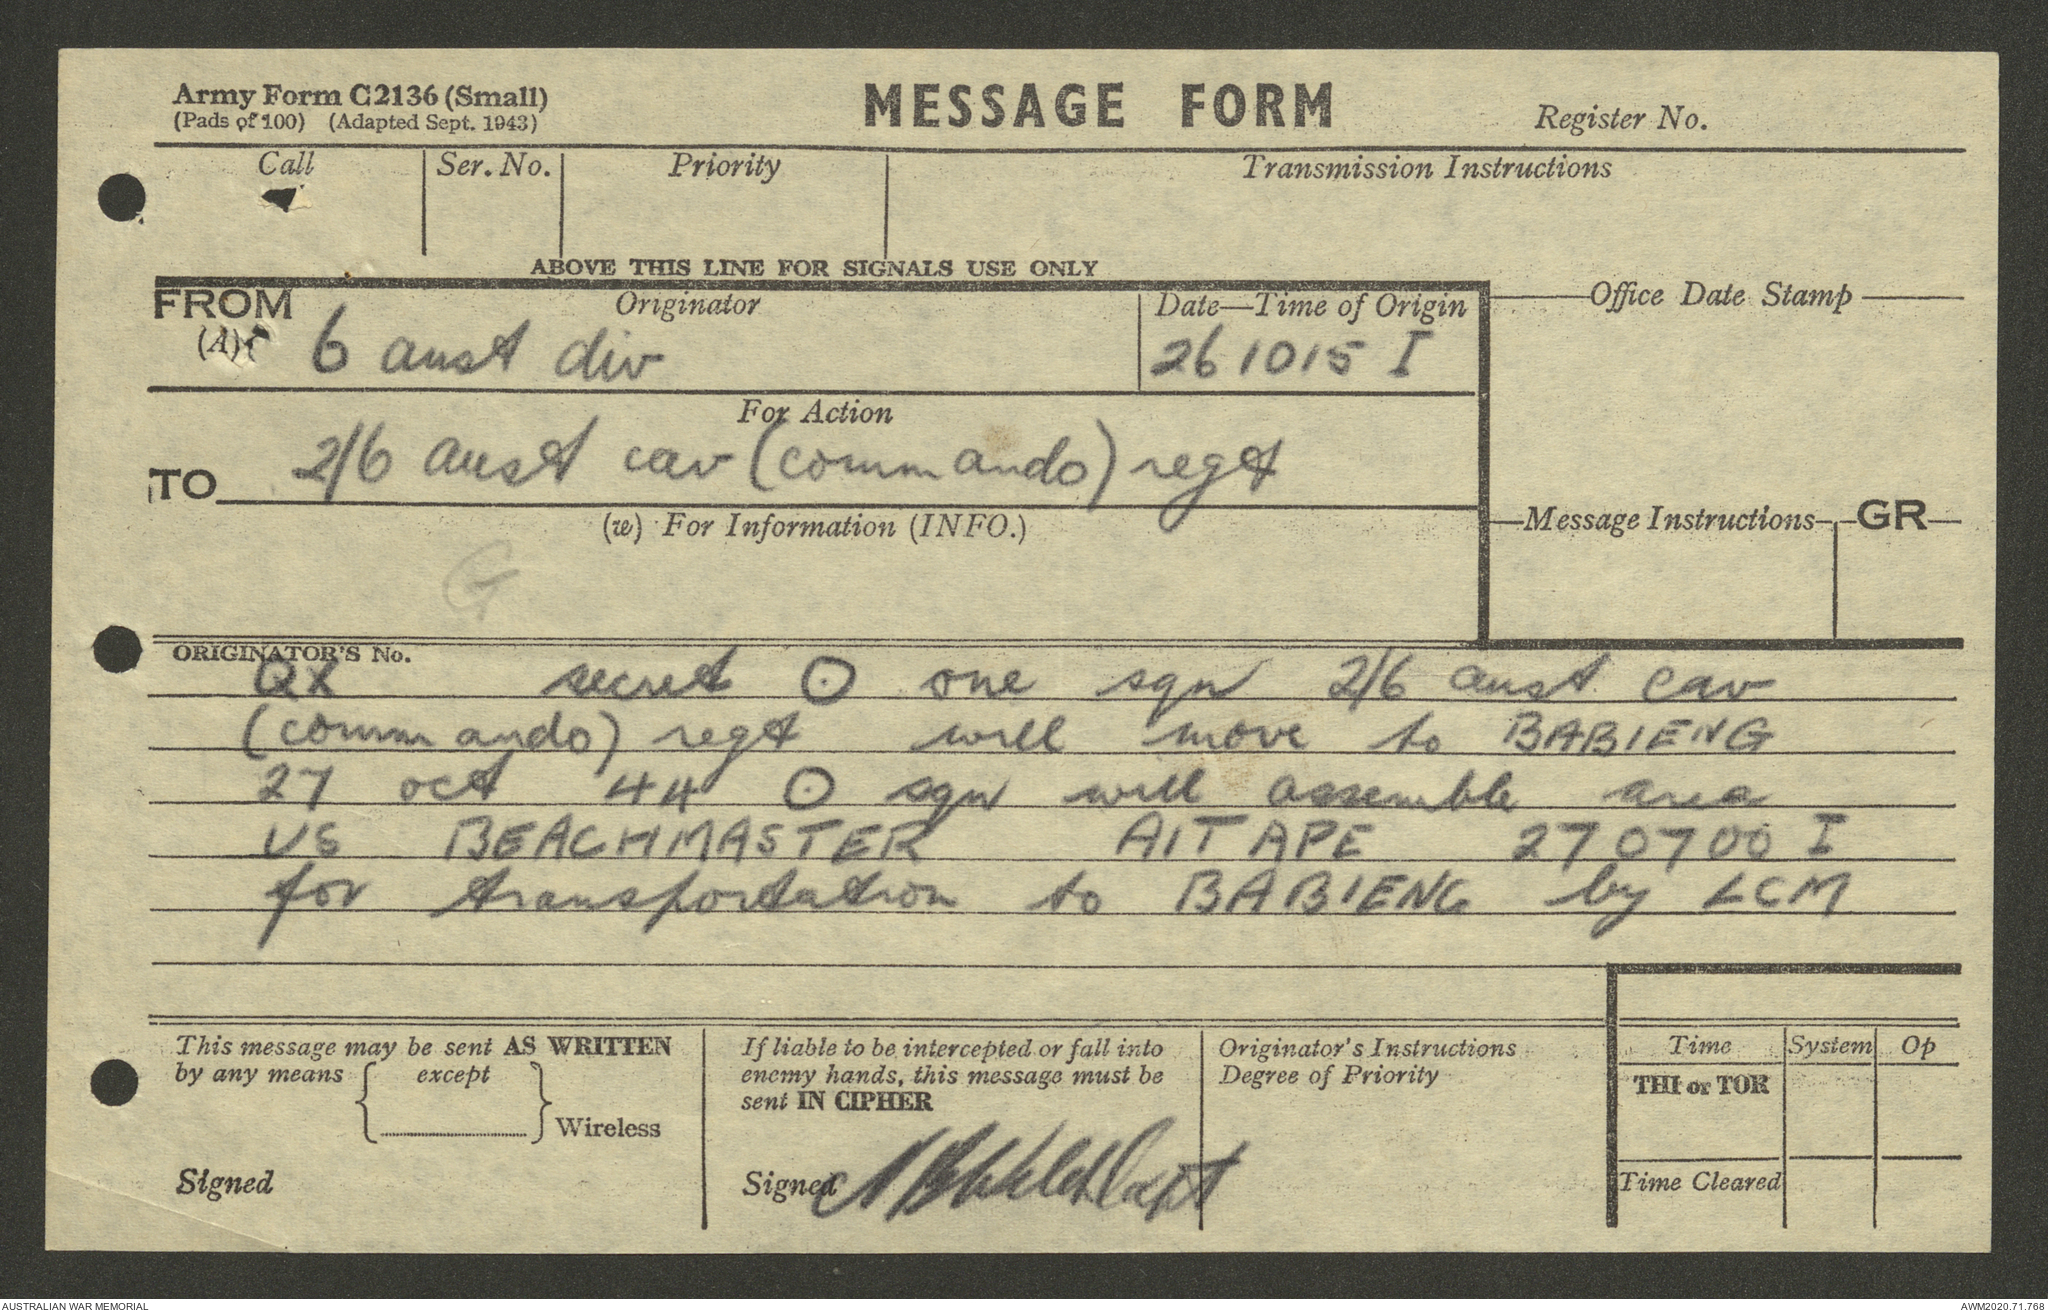 Army Form C2136 (Small)
(Pads of 100) (Adapted Sept. 1943)
MESSAGE FORM
Register No.
Call Ser. No. Priority Transmission Instructions
ABOVE THIS LINE FOR SIGNALS USE ONLY
FROM Originator Date—Time of Origin Office Date Stamp
(A) 6 aust div 261015 I
For Action
TO 2/6 aust cav (commando) regt
(w) For Information (INFO.) Message Instructions GR
G
ORIGINATOR'S No.
QX secret O one sqn 2/6 aust cav
(commando) regt will move to BABIENG
27 oct 44 O sqn will assemble area
US BEACHMASTER AITAPE 270700 I
for transportation to BABIENG by LCM
This message may be sent AS WRITTEN
by any means except
Wireless
Signed
If liable to be intercepted or fall into
enemy hands, this message must be
sent IN CIPHER
Signed Capt
Originator's Instructions
Degree of Priority
Time System Op
THI or TOR
Time Cleared
AUSTRALIAN WAR MEMORIAL
AWM2020.71.768